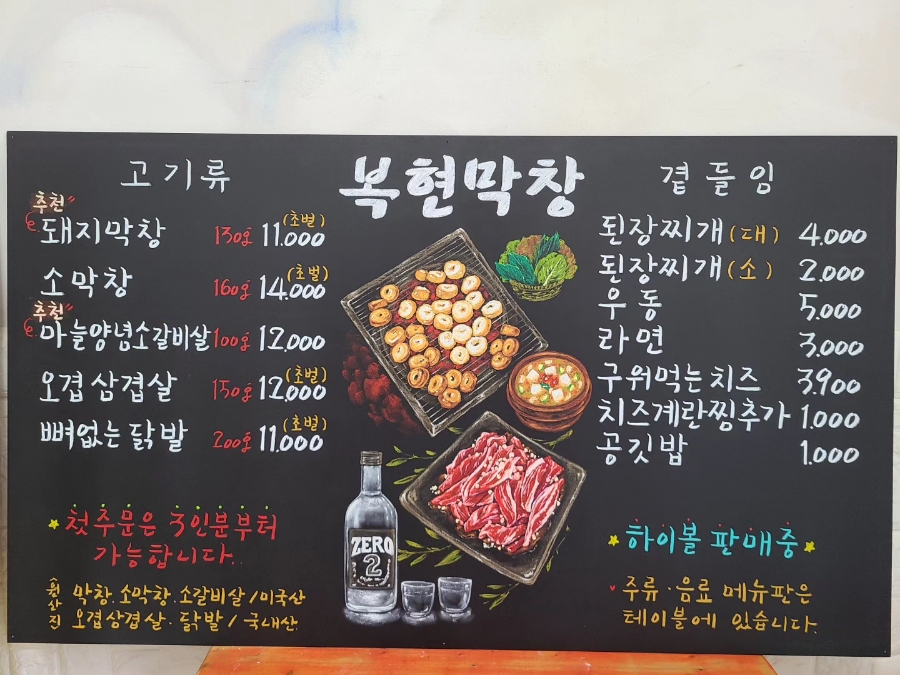 복현막창
고기류
추천
돼지막창 130g 11.000 (초벌)
소막창 160g 14.000 (초벌)
추천
마늘양념소갈비살 100g 12.000
오겹삼겹살 150g 12.000 (초벌)
뼈없는 닭발 200g 11.000 (초벌)
첫주문은 3인분부터
가능합니다.
원산지
막창.소막창.소갈비살/미국산
오겹삼겹살.닭발/국내산.
ZERO
2
곁들임
된장찌개(대) 4.000
된장찌개(소) 2.000
우동 5.000
라면 3.000
구워먹는치즈 3.900
치즈계란찜추가 1.000
공깃밥 1.000
하이볼 판매중
주류·음료 메뉴판은
테이블에 있습니다.